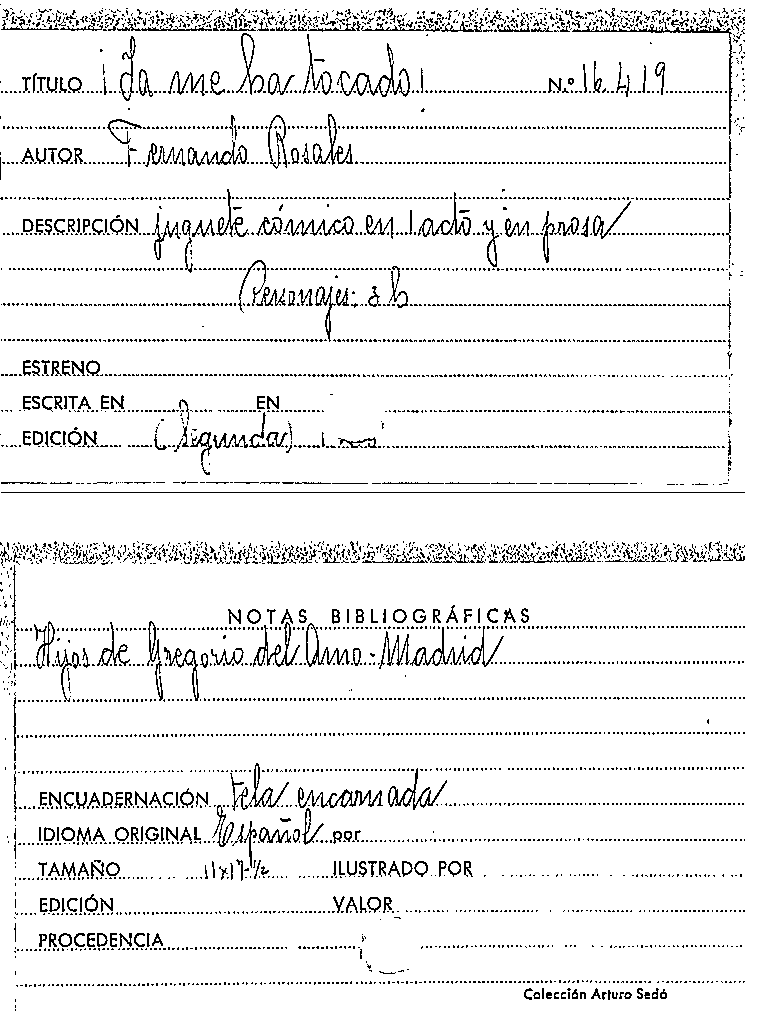 TÍTULO ¡Ya me ha tocado! N.º 16.419
AUTOR Fernando Rosales
DESCRIPCIÓN juguete cómico en 1 acto y en prosa
Personajes: 3 h
ESTRENO
ESCRITA EN EN
EDICIÓN (Segunda)
NOTAS BIBLIOGRÁFICAS
Hijos de Gregorio del Amo-Madrid
ENCUADERNACIÓN tela encarnada
IDIOMA ORIGINAL Español por
TAMAÑO 11x17-1/2 ILUSTRADO POR
EDICIÓN VALOR
PROCEDENCIA
Colección Arturo Sedó